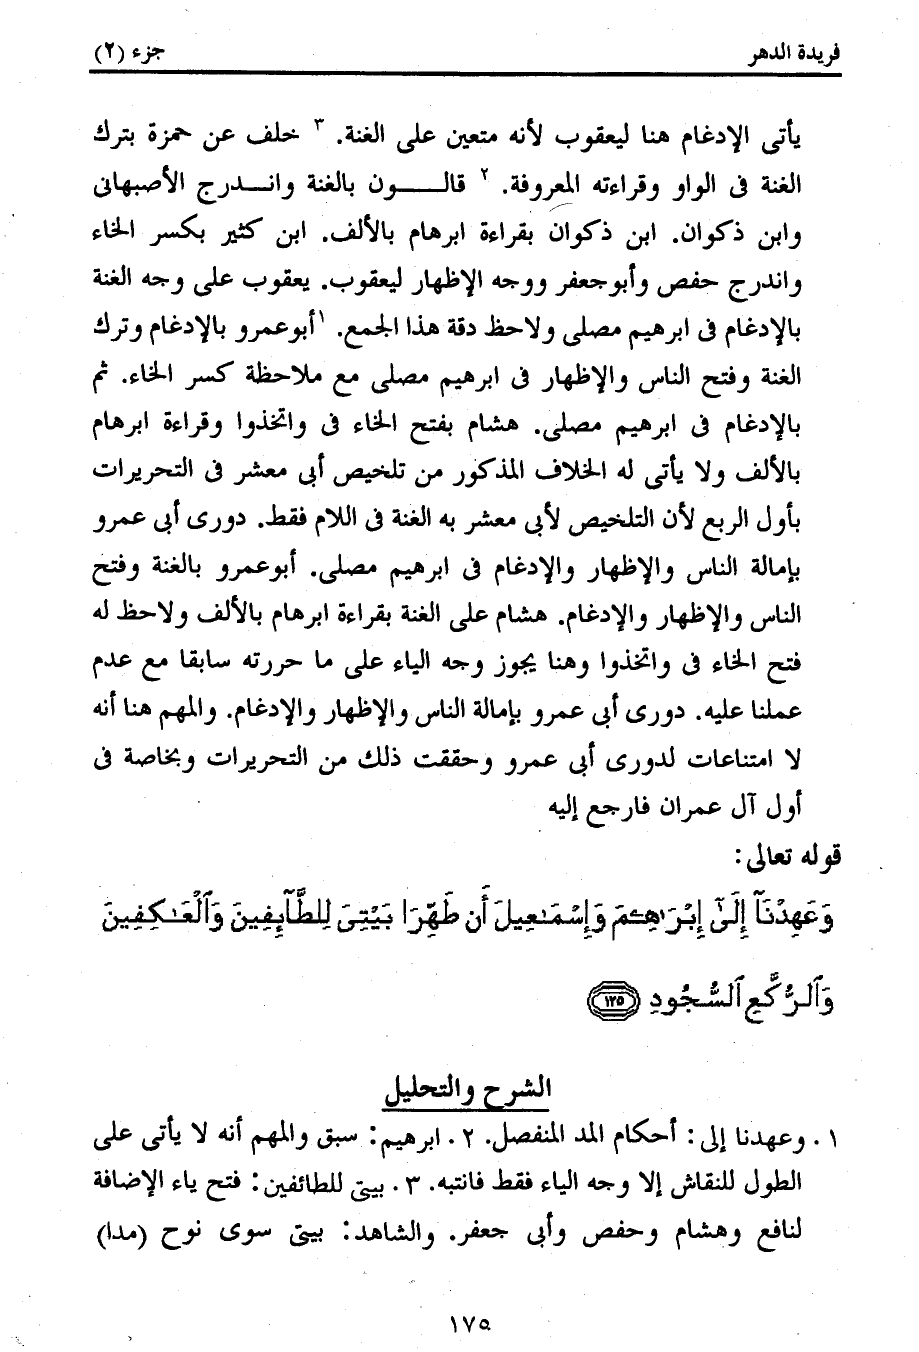 فريدة الدهر جزء (٢)
يأتى الإدغام هنا ليعقوب لأنه متعين على الغنة. ٣ خلف عن حمزة بترك
الغنة فى الواو وقراءته المعروفة. ٢ قالـــــون بالغنة وانـــدرج الأصبهانى
وابن ذكوان. ابن ذكوان بقراءة ابرهام بالألف. ابن كثير بكسر الخاء
واندرج حفص وأبوجعفر ووجه الإظهار ليعقوب. يعقوب على وجه الغنة
بالإدغام فى ابرهيم مصلى ولاحظ دقة هذا الجمع. ١ أبوعمرو بالإدغام وترك
الغنة وفتح الناس والإظهار فى ابرهيم مصلى مع ملاحظة كسر الخاء. ثم
بالإدغام فى ابرهيم مصلى. هشام بفتح الخاء فى واتخذوا وقراءة ابرهام
بالألف ولا يأتى له الخلاف المذكور من تلخيص أبى معشر فى التحريرات
بأول الربع لأن التلخيص لأبى معشر به الغنة فى اللام فقط. دورى أبى عمرو
بإمالة الناس والإظهار والإدغام فى ابرهيم مصلى. أبوعمرو بالغنة وفتح
الناس والإظهار والإدغام. هشام على الغنة بقراءة ابرهام بالألف ولاحظ له
فتح الخاء فى واتخذوا وهنا يجوز وجه الياء على ما حررته سابقا مع عدم
عملنا عليه. دورى أبى عمرو بإمالة الناس والإظهار والإدغام. والمهم هنا أنه
لا امتناعات لدورى أبى عمرو وحققت ذلك من التحريرات وبخاصة فى
أول آل عمران فارجع إليه
قوله تعالى:
وَعَهِدْنَآ إِلَىٰٓ إِبْرَٰهِـۧمَ وَإِسْمَـٰعِيلَ أَن طَهِّرَا بَيْتِىَ لِلطَّآئِفِينَ وَٱلْعَـٰكِفِينَ
وَٱلرُّكَّعِ ٱلسُّجُودِ ١٢٥
الشرح والتحليل
١. وعهدنا إلى: أحكام المد المنفصل. ٢. ابرهيم: سبق والمهم أنه لا يأتى على
الطول للنقاش إلا وجه الياء فقط فانتبه. ٣. بيتى للطائفين: فتح ياء الإضافة
لنافع وهشام وحفص وأبى جعفر. والشاهد: بيتى سوى نوح (مدا)
١٧٥